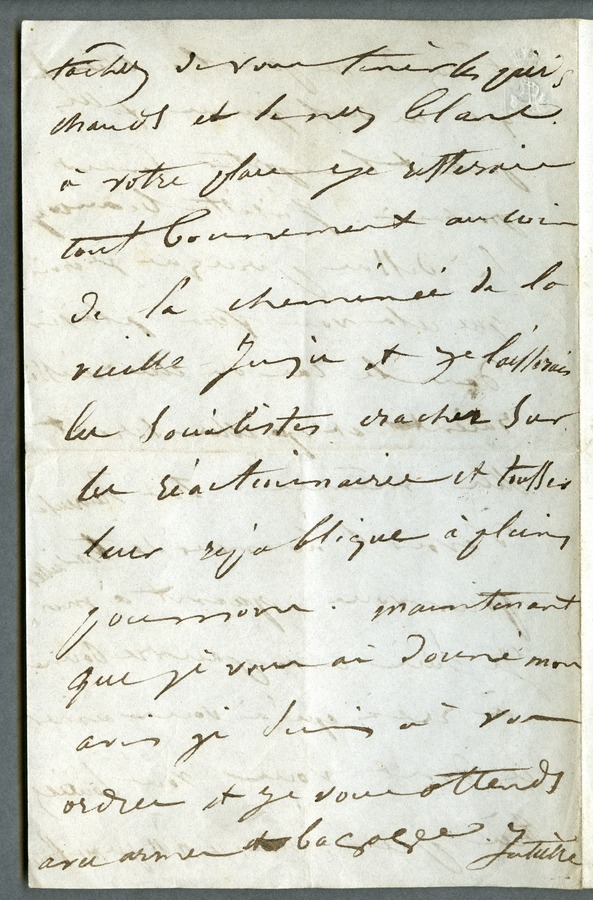 tachez de vous tenir les pieds
chauds et le nez blanc.
à votre place je resterais
tout bonnement au coin
de la cheminée de la
vieille Juju et je laisserais
les Socialistes cracher sur
les réactionnaires et tousser
leur république à pleins
poumons. maintenant
que je vous ai donné mon
avis je suis à vos
ordres et je vous attends
avec armes et bagages. Juliette